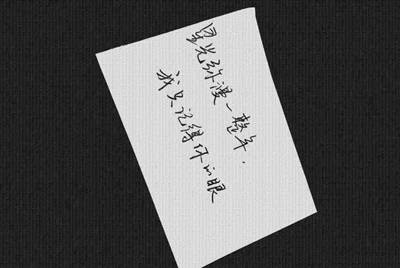 星光弥漫一整年.
我只记得你的眼